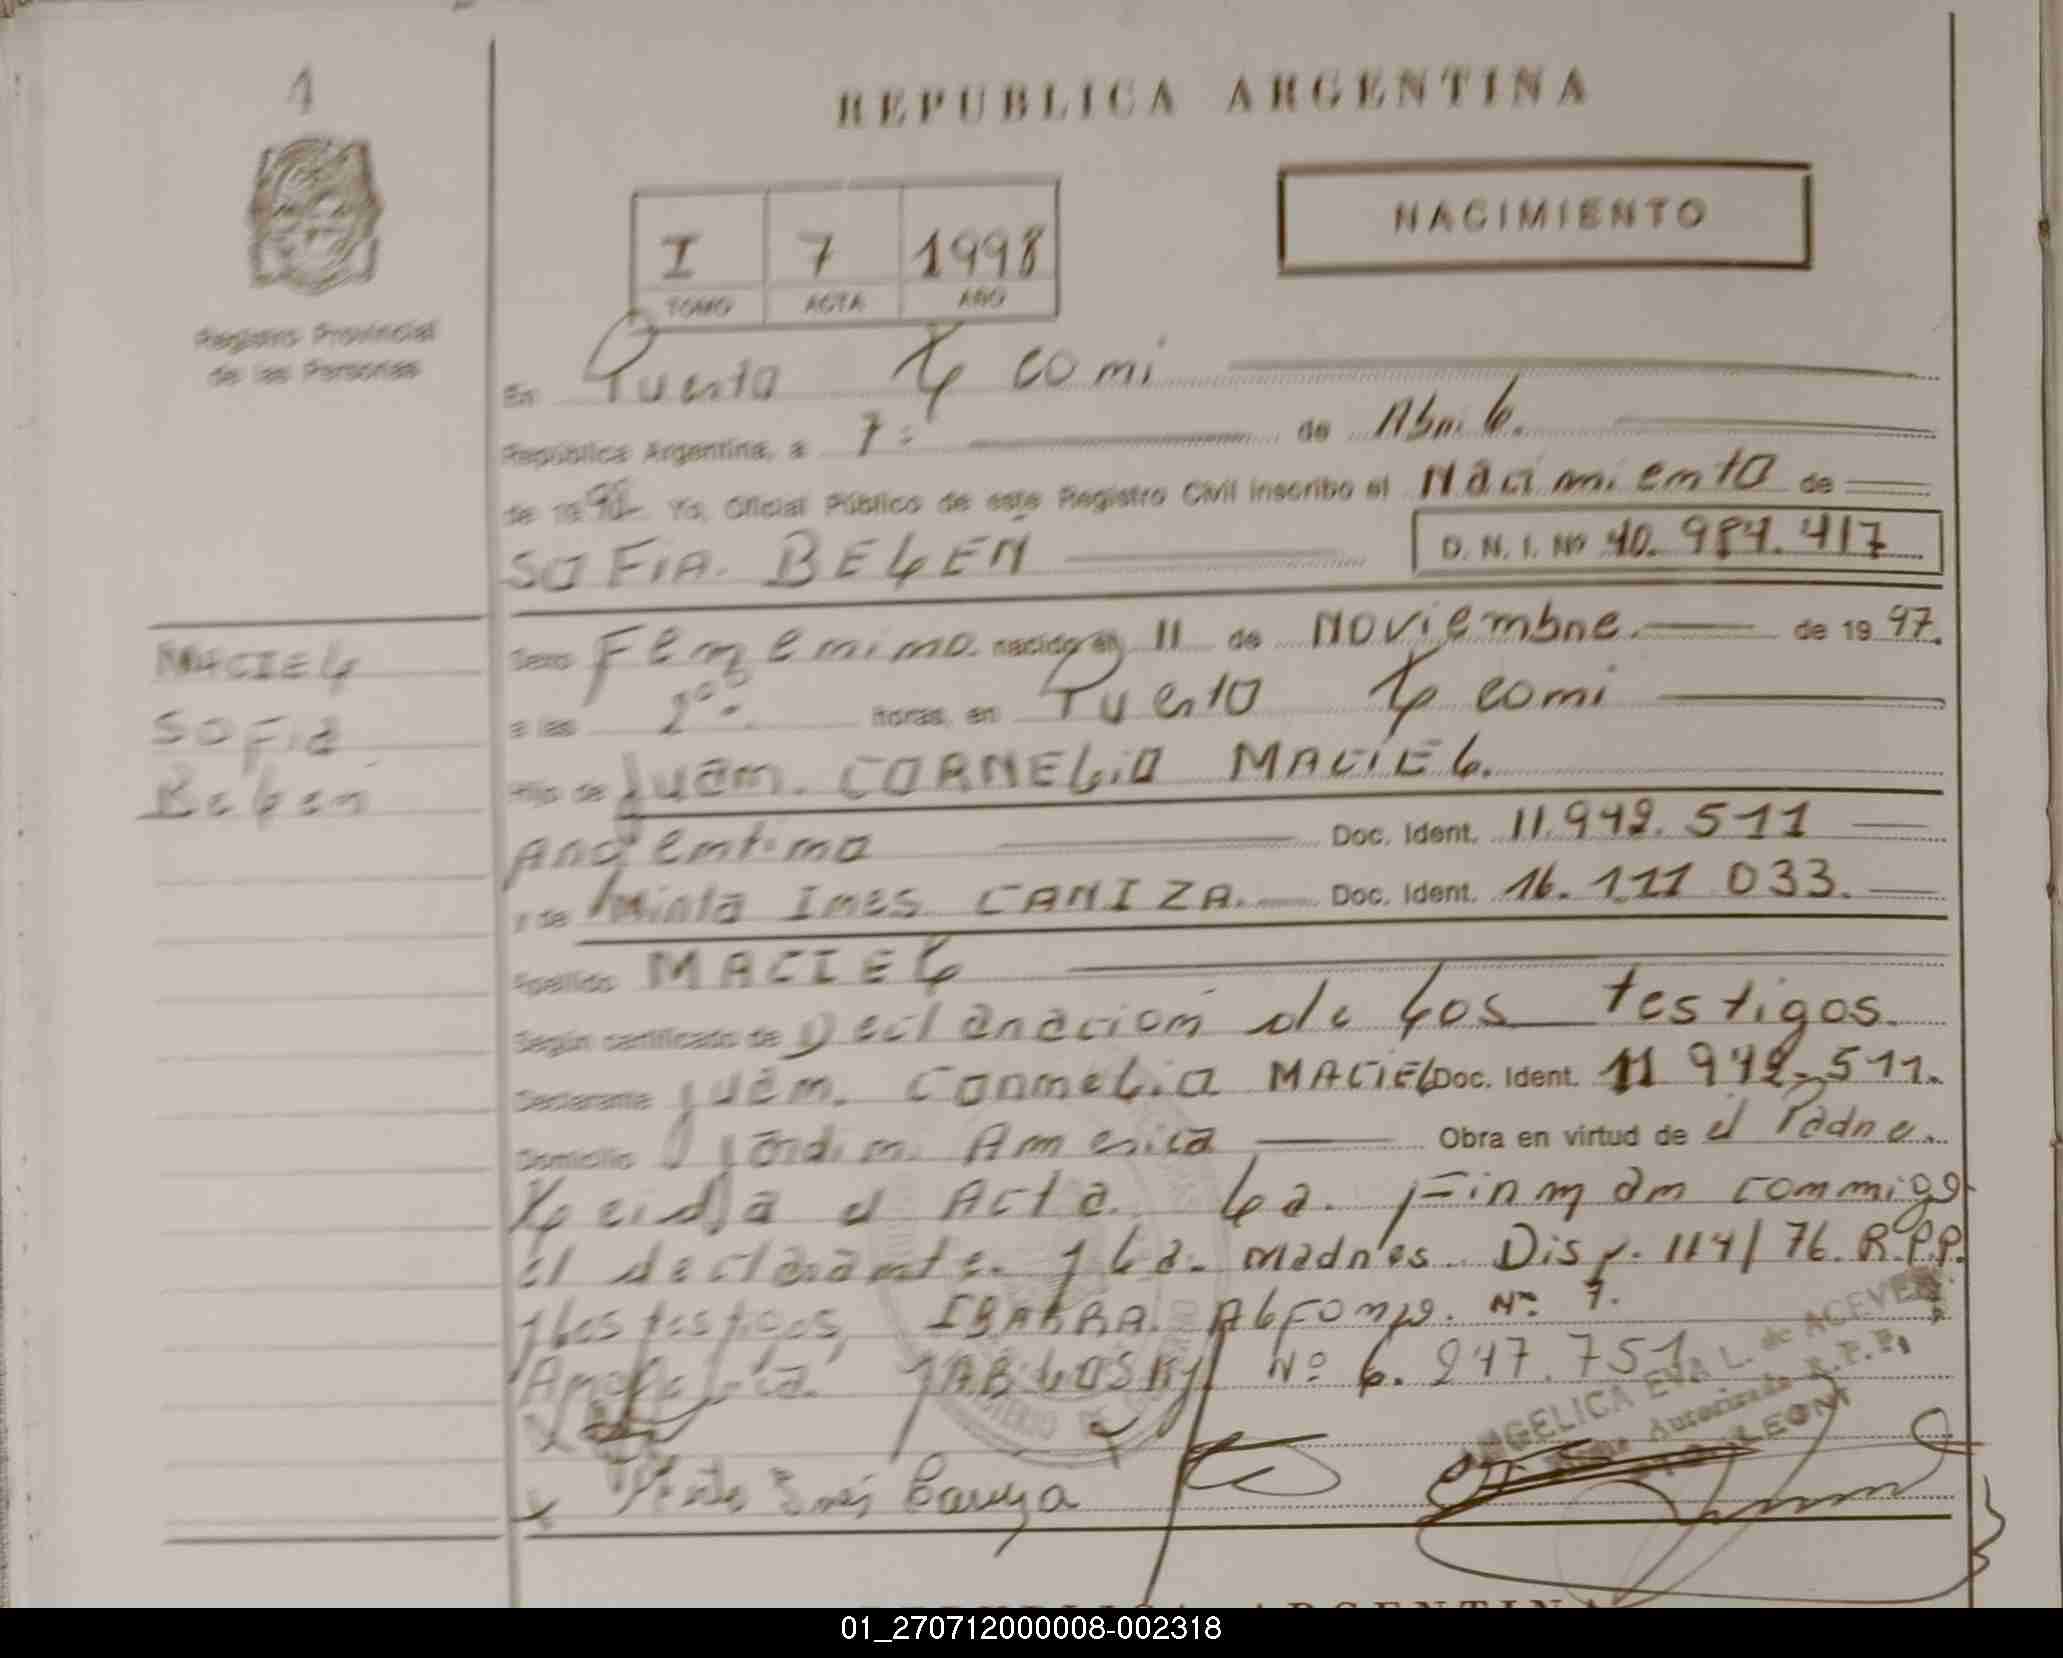 1
REPUBLICA ARGENTINA
NACIMIENTO
I 7 1998
TOMO ACTA AÑO
Registro Provincial
de las Personas
En Puerto Leoni
República Argentina, a 7: de Abril.
de 19 98 Yo, Oficial Público de este Registro Civil inscribo el Nacimiento de
SOFIA. BELEN D. N. I. Nº 40.984.417
MACIEL
Sofia
Belen
Sexo Femenino. nacido el 11 de Noviembre. de 19 97.
a las horas, en Puerto Leoni
Hijo de Juan. CORNELIO MACIEL.
Argentino Doc. Ident. 11.942.511
y de Mirta Ines CANIZA. Doc. Ident. 16.111 033.
Apellido MACIEL
Según certificado de Declaración de los testigos.
Declarante Juan. Cornelio MACIEL Doc. Ident. 11 942.511.
Domicilio Jardin America Obra en virtud de el Padre.
Leida el Acta. La. Firman conmigo
el declarante. y La. madres Disp. 114/76. R.P.P.
y Los testigos, IBARRA. ALFONZO. Nº 7.
JABLOSKY Nº 6.247.751
ANGELICA EVA L. de ACEVEDO
Autorizada R.P.P.
LEONI
Inés Caniza
REPUBLICA ARGENTINA
01_270712000008-002318